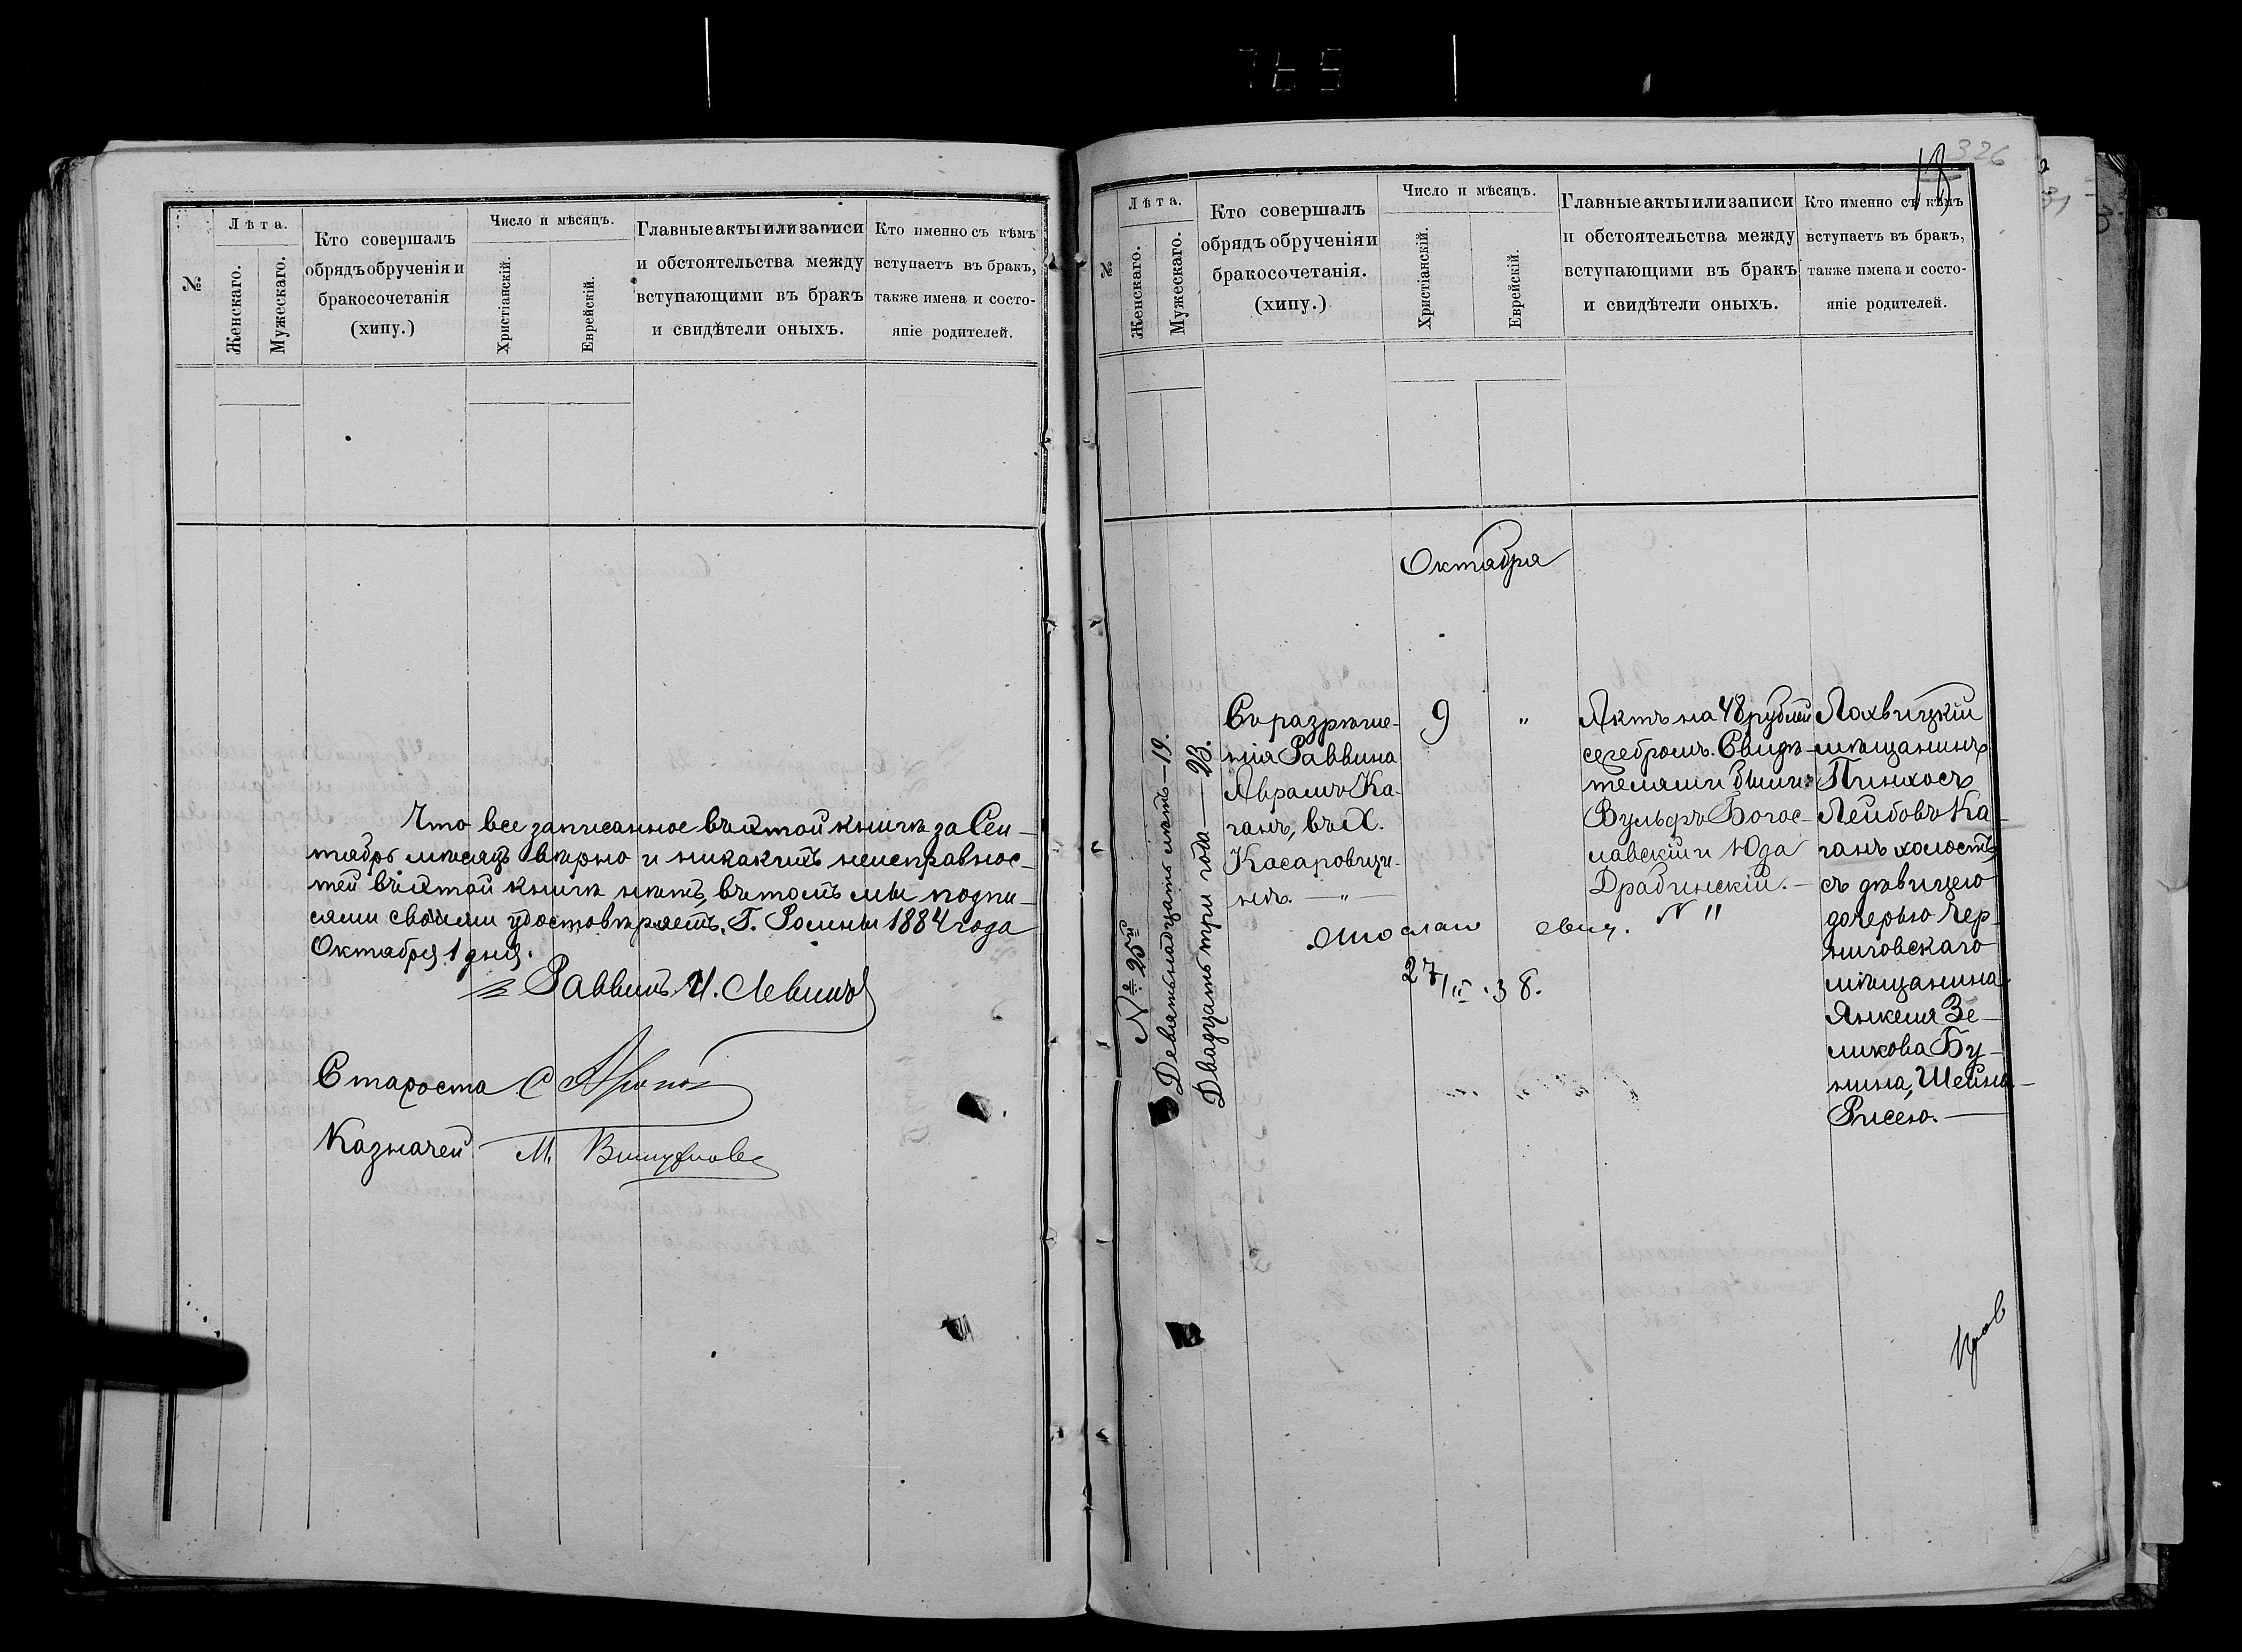 765
№
Лѣта.
Женскаго.
Мужескаго.
Кто совершалъ
обрядъ обрученія и
бракосочетанія
(хипу.)
Число и мѣсяцъ.
Христіанскій.
Еврейскій.
Главные акты или записи
и обстоятельства между
вступающими въ бракъ
и свидѣтели оныхъ.
Кто именно съ кѣмъ
вступаетъ въ бракъ,
также имена и состо-
яніе родителей.
Что все записанное въ этой книгѣ за Сен-
тябрь мѣсяцъ вѣрно и никакихъ неисправнос-
тей въ этой книгѣ нѣтъ, въ томъ мы подпи-
сями своими удостовѣряемъ. Г. Ромны 1884 года
Октября 1 дня.
Раввинъ И. Левинъ
Староста С
Казначей М.
326
18
№
Лѣта.
Женскаго.
Мужескаго.
Кто совершалъ
обрядъ обрученія и
бракосочетанія.
(хипу.)
Число и мѣсяцъ.
Христіанскій.
Еврейскій.
Главные акты или записи
и обстоятельства между
вступающими въ бракъ
и свидѣтели оныхъ.
Кто именно съ кѣмъ
вступаетъ въ бракъ,
также имена и состо-
яніе родителей.
Октября
№ 25й
Девятьнадцать лѣтъ — 19.
Двадцать три года — 23.
Съ разрѣше-
нія Раввина
Аврамъ Ка-
ганъ, въ х.
Касаровщи-
нѣ. — " —
9
"
Актъ на 48 рублей
серебромъ. Свидѣ-
телями были:
Вульфъ Богос-
лавскій и Юда
Драбинскій. —
Лохвицкій
мѣщанинъ
Пинхосъ
Лейбовъ Ка-
ганъ холостъ,
съ дѣвицею
дочерью Чер-
ниговскаго
мѣщанина
Янкеля Зе-
ликова Бу-
нина, Шейна-
Рисею. —
Отослан свид. № 11
27/II . 38.